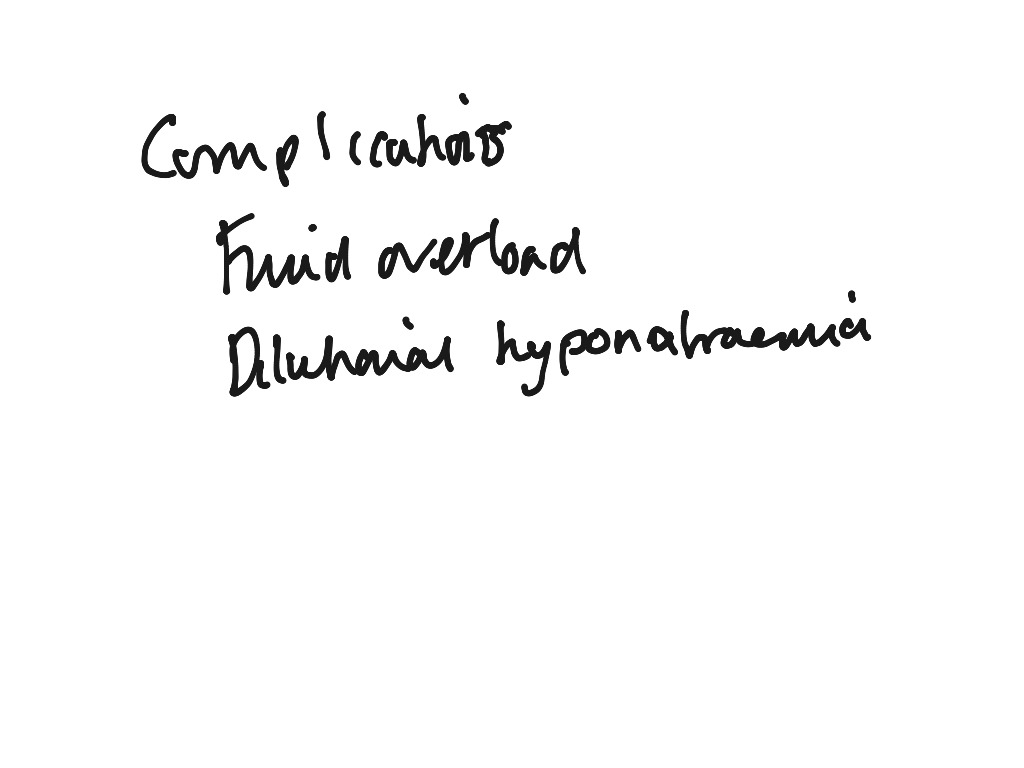 Complications
Fluid overload
Dilutional hyponatraemia